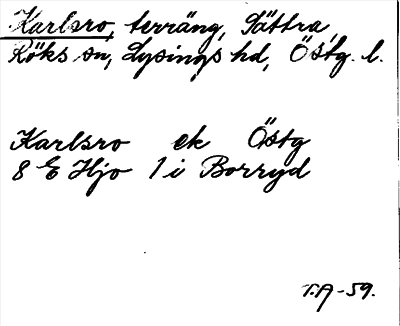 Karlsro, terräng, Sättra,
Röks sn, Lysings hd, Östg. l.
Karlsro ek Östg
8 E Hjo 1 i Borryd
T.A-59.